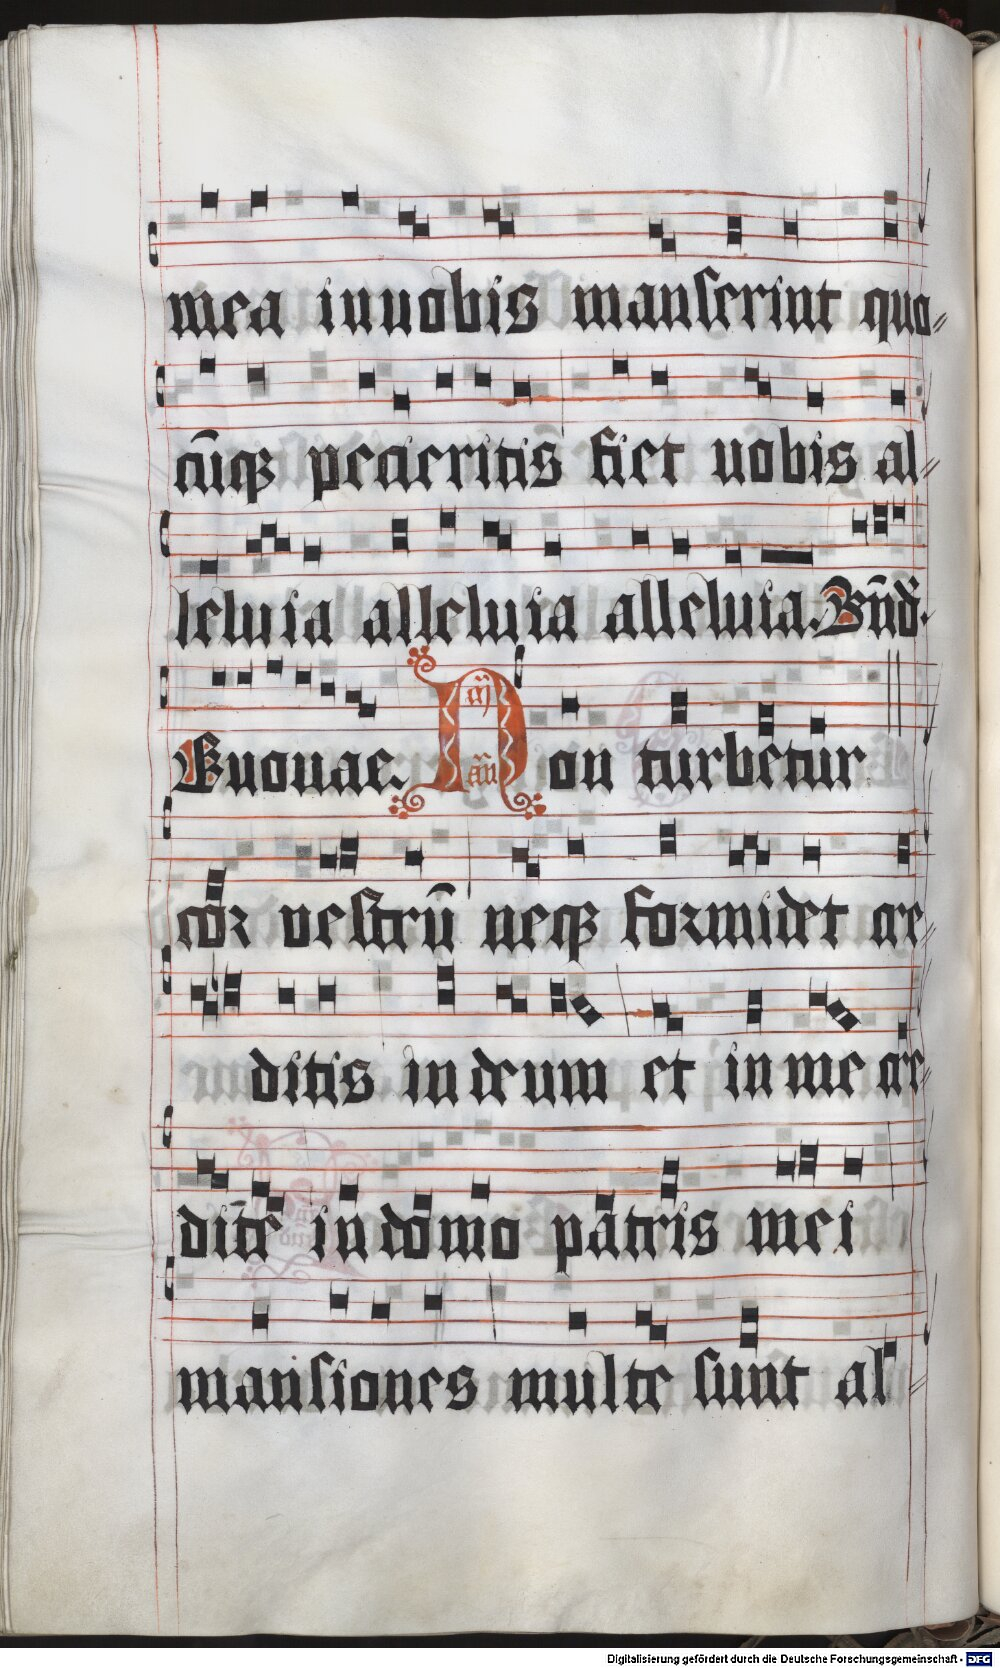 mea in uobis manserint quo-
cūqꝫ pecieritis fiet uobis al-
leluia alleluia alleluia. Bn̄d̄.
Euouae. Non turbetur
cor vestrū neqꝫ formidet cre-
ditis in deum et in me cre-
dite in domo patris mei
mansiones multe sunt al-
Digitalisierung gefördert durch die Deutsche Forschungsgemeinschaft - DFG